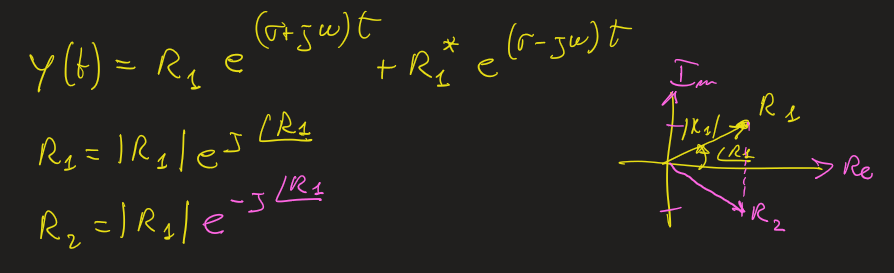 y(t) = R₁ e^(σ+jω)t + R₁* e^(σ-jω)t
R₁ = |R₁| e^j∠R₁
R₂ = |R₁| e^-j∠R₁
Im
R₁
|R₁|
∠R₁
Re
R₂